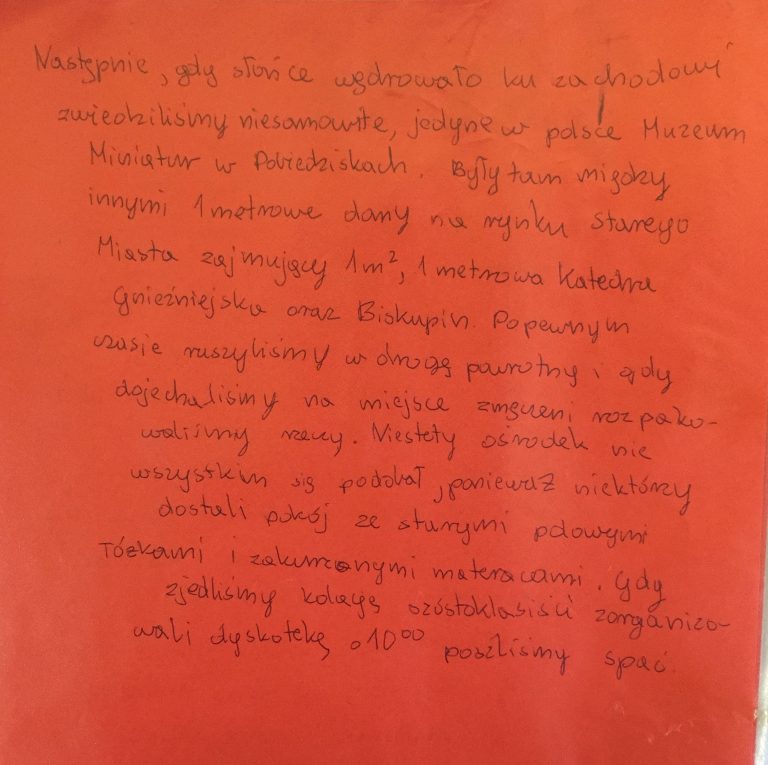 Następnie, gdy słońce wędrowało ku zachodowi
zwiedziliśmy niesamowite, jedyne w polsce Muzeum
Miniatur w Pobiedziskach. Były tam między
innymi 1 metrowe domy na rynku starego
Miasta zajmujący 1m², 1 metrowa Katedra
Gnieźniejska oraz Biskupin. Popewnym
czasie ruszyliśmy w drogę powrotny i gdy
dojechaliśmy na miejsce zmęczeni rozpako-
waliśmy rzeczy. Niestety ośrodek nie
wszystkim się podobał, ponieważ niektórzy
dostali pokój ze starymi
łóżkami i zakurzonymi materacami. Gdy
zjedliśmy kolację szóstoklasiści zorganizo-
wali dyskotekę, o 10⁰⁰ poszliśmy spać.